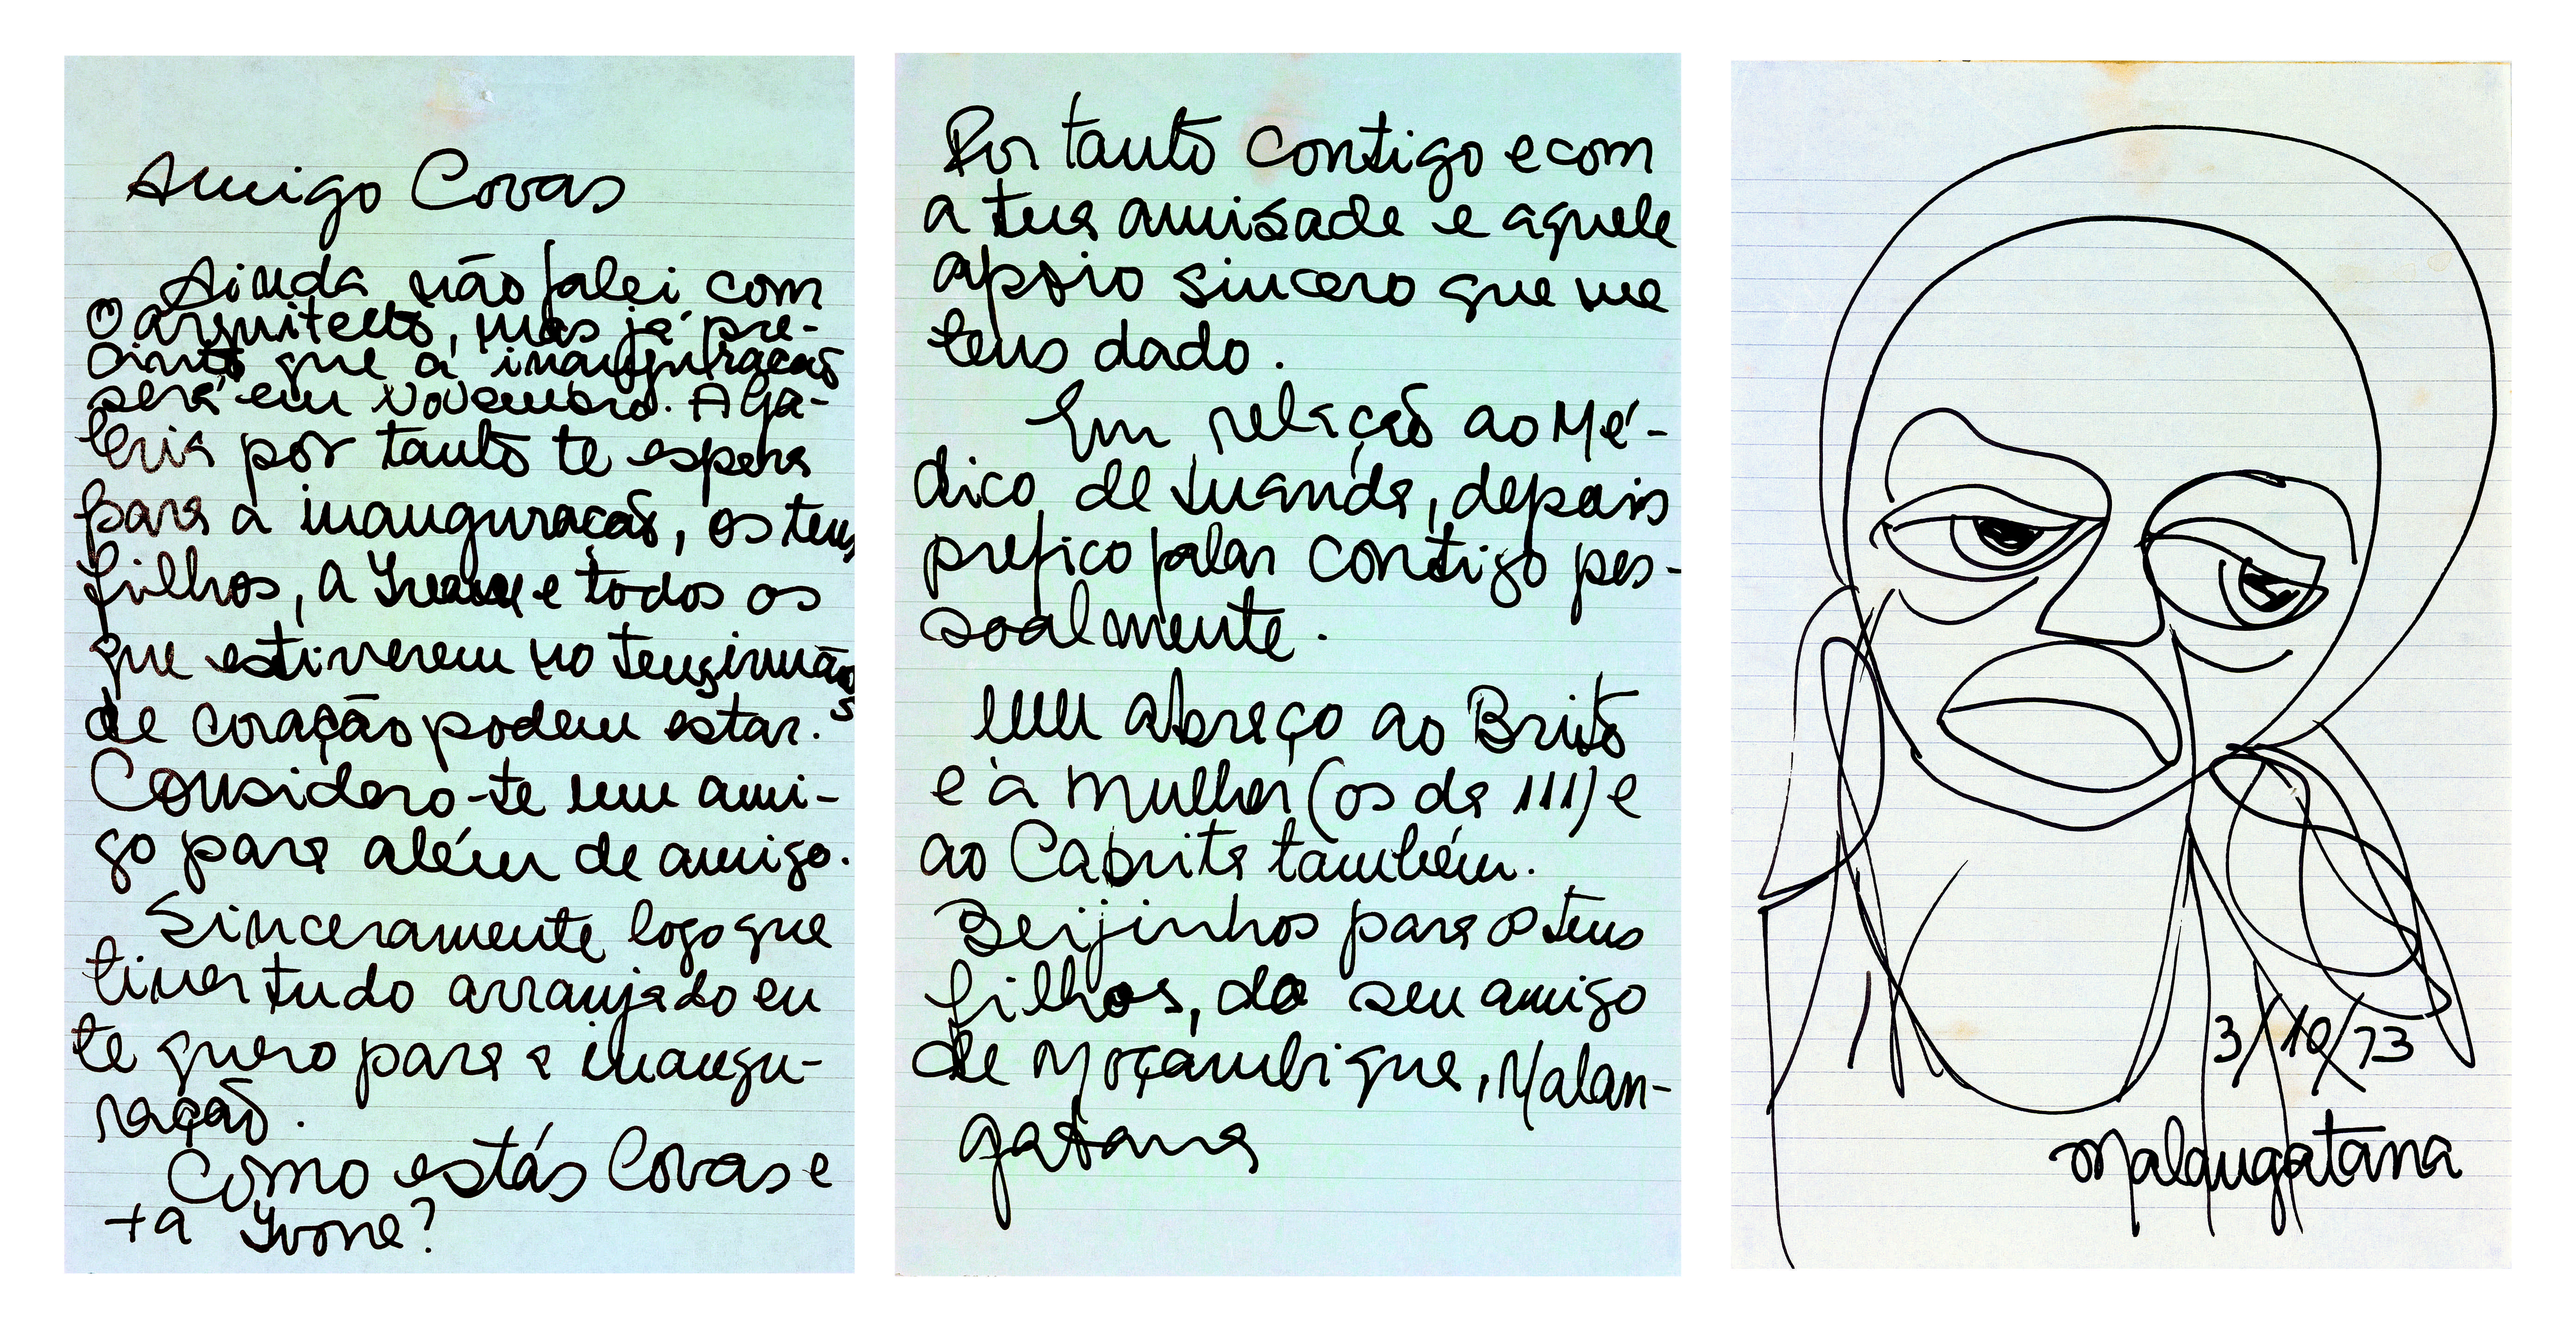 Amigo Covas
Ainda não falei com
o arquitecto, mas já pre-
cinto que a inauguração
será em Novembro. A Ga-
leria por tanto te espera
para a inauguração, os teus
filhos, a Yvone e todos os
que estiverem no teus irmãos
de coração podem estar.
Considero-te um ami-
go para além de amigo.
Sinceramente logo que
tiver tudo arranjado eu
te quero para a inaugu-
ração.
Como estás Covas e
+a Yvone?
Por tanto contigo e com
a tua amisade e aquele
apoio sincero que me
tens dado.
Em relação ao Mé-
dico de Luanda, depois
prefico falar contigo pes-
soalmente.
Um abraço ao Brito
e à mulher (os da III) e
ao Cabrita também.
Beijinhos para os teus
filhos, do seu amigo
de Moçambique, Malan-
gatana
3/10/73
Malangatana